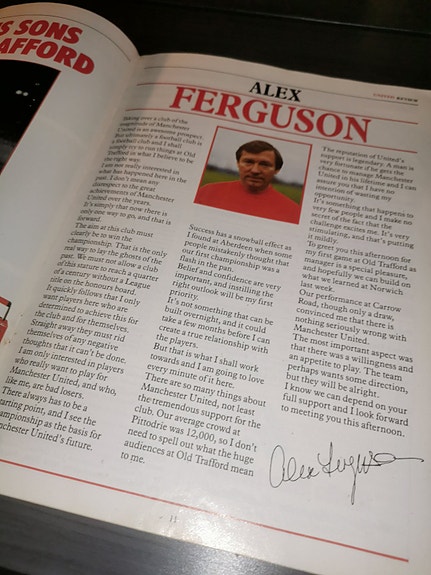 'S SONS
AFFORD
UNITED REVIEW
ALEX
FERGUSON
Taking over a club of the
magnitude of Manchester
United is an awesome prospect.
But ultimately a football club is
a football club and I shall
simply try to run things at Old
Trafford in what I believe to be
the right way.
I am not really interested in
what has happened here in the
past. I don't mean any
disrespect to the great
achievements of Manchester
United over the years.
It's simply that now there is
only one way to go, and that is
forward.
The aim at this club must
clearly be to win the
championship. That is the only
real way to lay the ghosts of the
past. We must not allow a club
of this stature to reach a quarter
of a century without a League
title on the honours board.
It quickly follows that I only
want players here who are
determined to achieve this for
the club and for themselves.
Straight away they must rid
themselves of any negative
thoughts that it can't be done.
I am only interested in players
who really want to play for
Manchester United, and who,
like me, are bad losers.
There always has to be a
starting point, and I see the
championship as the basis for
Manchester United's future.
Success has a snowball effect as
I found at Aberdeen when some
people mistakenly thought that
our first championship was a
flash in the pan.
Belief and confidence are very
important, and instilling the
right outlook will be my first
priority.
It's not something that can be
built overnight, and it could
take a few months before I can
create a true relationship with
the players.
But that is what I shall work
towards and I am going to love
every minute of it here.
There are so many things about
Manchester United, not least
the tremendous support for the
club. Our average crowd at
Pittodrie was 12,000, so I don't
need to spell out what the huge
audiences at Old Trafford mean
to me.
The reputation of United's
support is legendary. A man is
very fortunate if he gets the
chance to manage Manchester
United in his lifetime and I can
assure you that I have no
intention of wasting my
opportunity.
It's something that happens to
very few people and I make no
secret of the fact that the
challenge excites me. It's very
stimulating, and that's putting
it mildly.
To greet you this afternoon for
my first game at Old Trafford as
manager is a special pleasure,
and hopefully we can build on
what we learned at Norwich
last week.
Our performance at Carrow
Road, though only a draw,
convinced me that there is
nothing seriously wrong with
Manchester United.
The most important aspect was
that there was a willingness and
an appetite to play. The team
perhaps wants some direction,
but they will be alright.
I know we can depend on your
full support and I look forward
to meeting you this afternoon.
Alex Ferguson
11